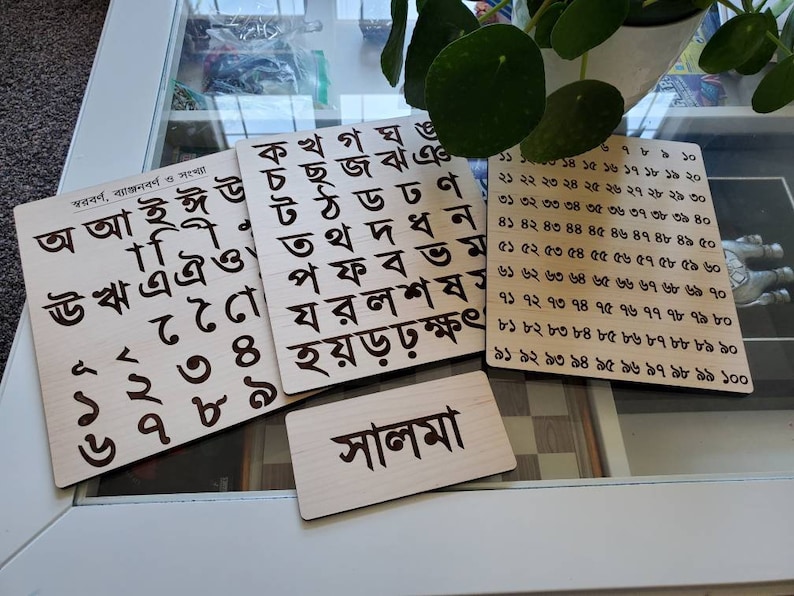 স্বরবর্ণ, ব্যাঞ্জনবর্ণ ও সংখ্যা
অ আ ই ঈ উ
া ি ী ু
ঊ ঋ এ ঐ ও
ে ৈ ো
১ ২ ৩ ৪
৬ ৭ ৮ ৯
ক খ গ ঘ ঙ
চ ছ জ ঝ ঞ
ট ঠ ড ঢ ণ
ত থ দ ধ ন
প ফ ব ভ ম
য র ল শ ষ স
হ য় ড় ঢ় ক্ষ ৎ
৬ ৭ ৮ ৯ ১০
১১ ১২ ১৩ ১৪ ১৫ ১৬ ১৭ ১৮ ১৯ ২০
২১ ২২ ২৩ ২৪ ২৫ ২৬ ২৭ ২৮ ২৯ ৩০
৩১ ৩২ ৩৩ ৩৪ ৩৫ ৩৬ ৩৭ ৩৮ ৩৯ ৪০
৪১ ৪২ ৪৩ ৪৪ ৪৫ ৪৬ ৪৭ ৪৮ ৪৯ ৫০
৫১ ৫২ ৫৩ ৫৪ ৫৫ ৫৬ ৫৭ ৫৮ ৫৯ ৬০
৬১ ৬২ ৬৩ ৬৪ ৬৫ ৬৬ ৬৭ ৬৮ ৬৯ ৭০
৭১ ৭২ ৭৩ ৭৪ ৭৫ ৭৬ ৭৭ ৭৮ ৭৯ ৮০
৮১ ৮২ ৮৩ ৮৪ ৮৫ ৮৬ ৮৭ ৮৮ ৮৯ ৯০
৯১ ৯২ ৯৩ ৯৪ ৯৫ ৯৬ ৯৭ ৯৮ ৯৯ ১০০
সালমা